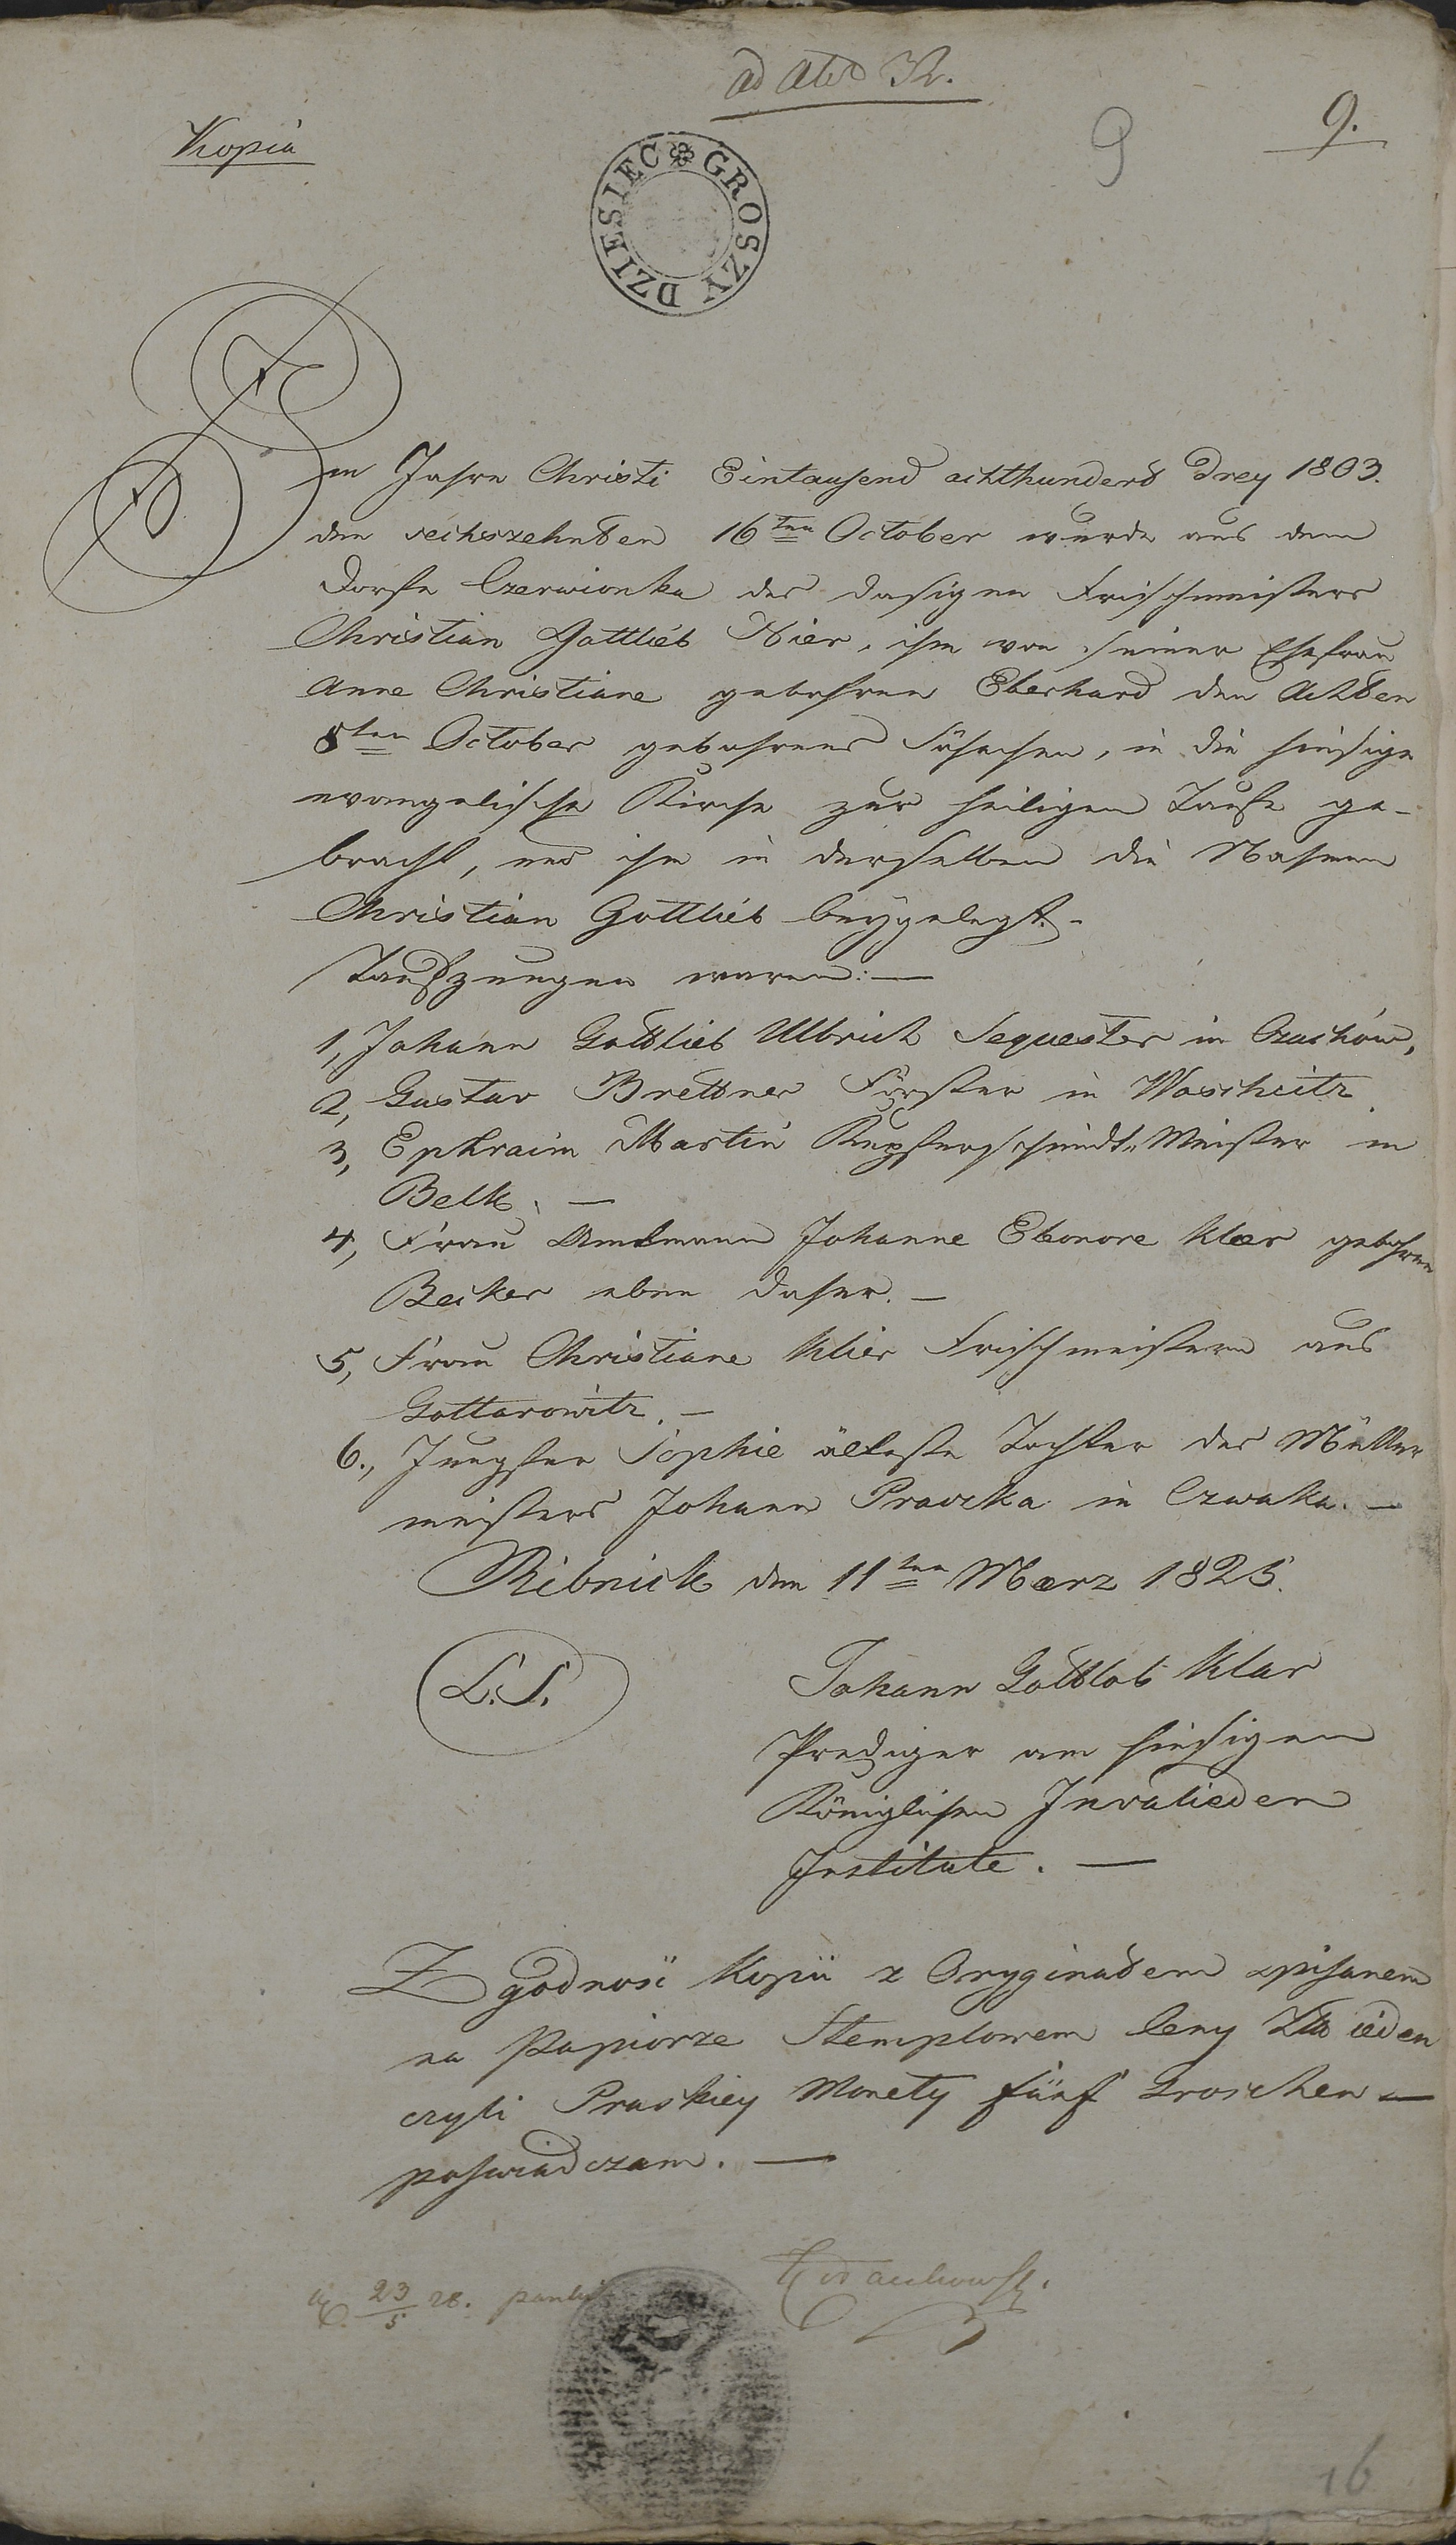 ad Aktd 32.
9 9.
Kopia
DZIESIEC GROSZY
Im Jahre Christi Eintausend achthunderd drey 1803.
den sechszehnden 16ten October wurde aus dem
Dorfe Czerwionka des dasigen Frischmeisters
Christian Gottlieb Klier, ihm von seiner Ehefrau
Anne Christiane gebohrne Eberhard den Achden
8ten October gebohrnes Söhnchen, in die hiesige
evangelische Kirche zur heiligen Taufe ge-
bracht, und ihm in derselben die Nahmen
Christian Gottlieb beygelegt.-
Taufzeugen waren:—
1, Johann Gottlieb Ulbrich Sequester in
2, Gustav Brettner Förster in Woscheitz.
3, Ephraim Martin Kupferschmidt-Meister in
Belk. —
4, Frau Amdmann Johanne Eleonore Klær gebohrne
Becker eben daher. —
5, Frau Christiane Klier Frischmeistern aus
Gottarowitz. —
6., Jungfer Sophie älteste Tochter des Müller
meisters Johann Pravcka in Czwaka. —
Ribnick den 11ten Mærz 1825.
L.S.
Johann Gottlob Klar
Prediger am hiesigen
Königlichen Invalieden
Institute. —
Zgodność Kopii z Oryginałem spisanem
na Papiorze Stemplowem Ceny Złto ieden
czyli Pruskiey Monety fünf Groschen —
poświadczam. —
23/5 28.
16